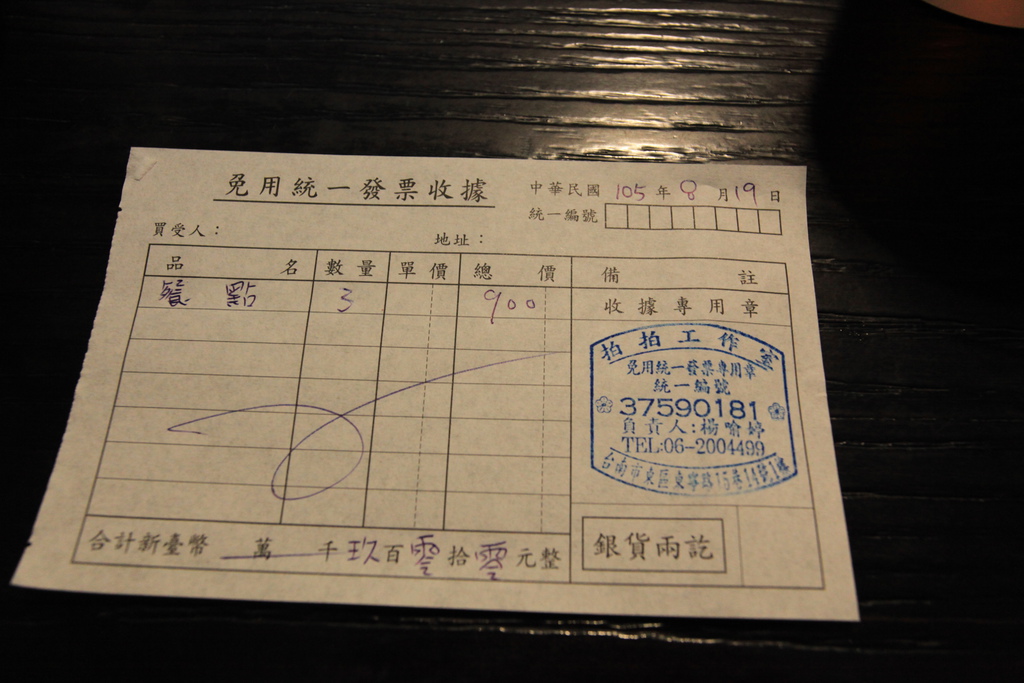 免用統一發票收據
中華民國 105 年 8 月 19 日
統一編號
買受人： 地址：
品名 數量 單價 總價 備註
餐點 3 900
收據專用章
拍拍工作室
免用統一發票專用章
統一編號
37590181
負責人:楊喻婷
TEL:06-2004499
台南市東區東寧路15巷14號1樓
合計新臺幣 萬 千 玖 百 零 拾 零 元整
銀貨兩訖